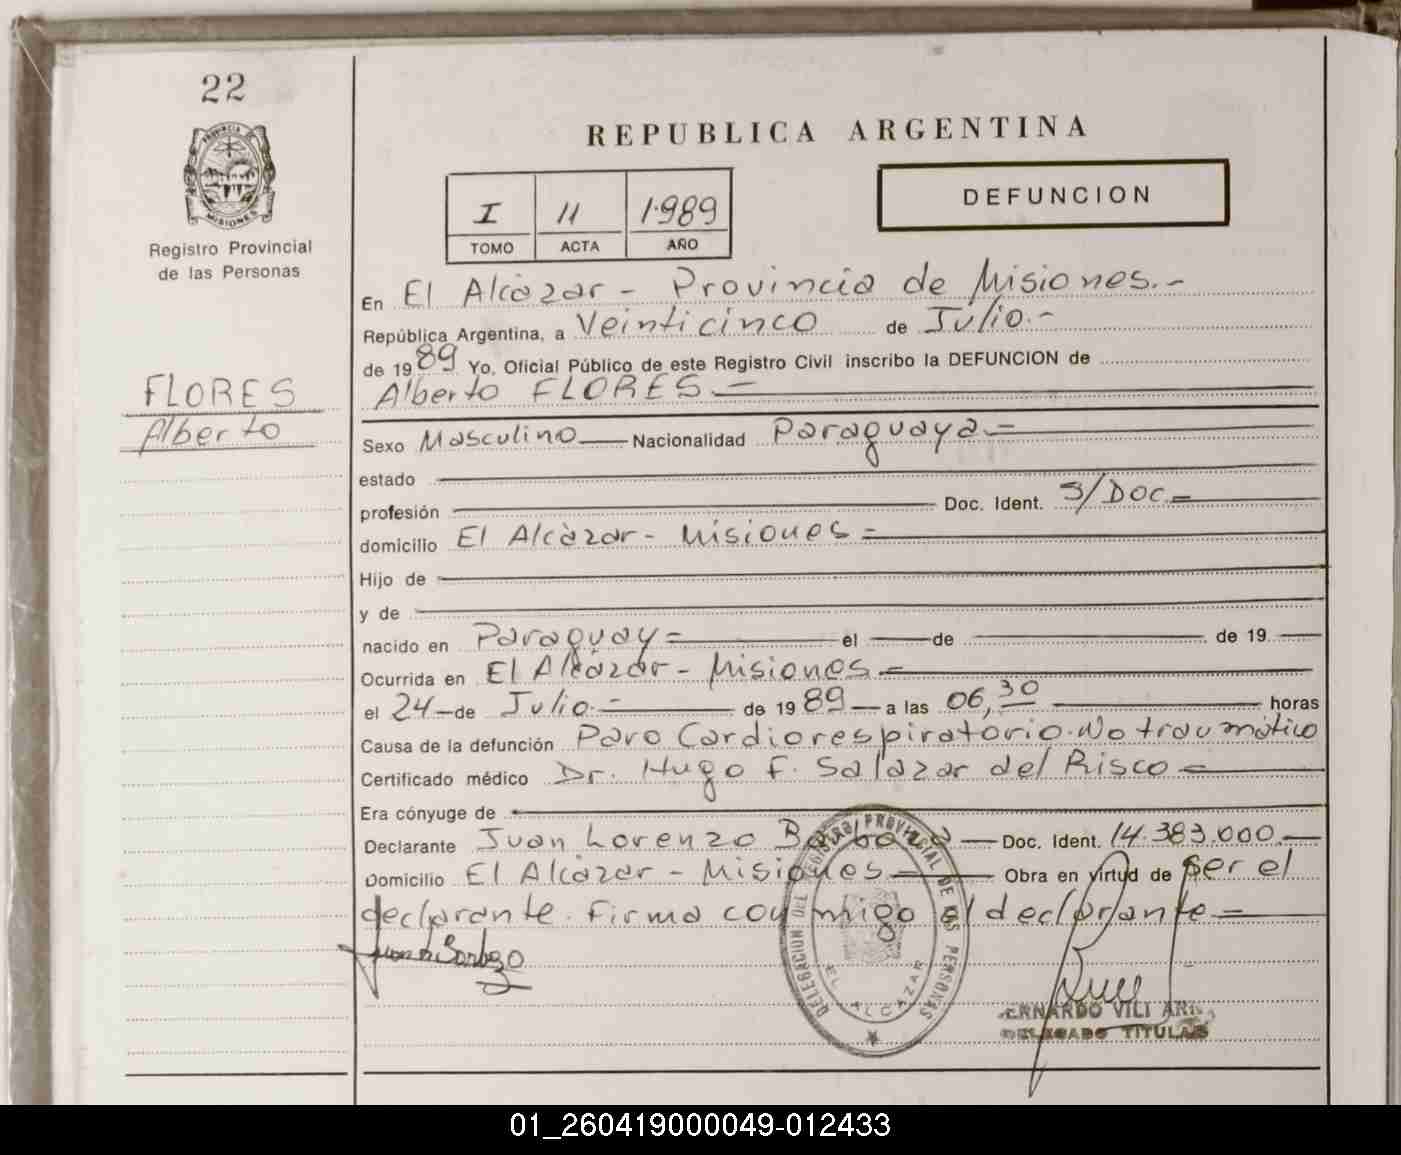 22
PROVINCIA DE
MISIONES
Registro Provincial
de las Personas
FLORES
Alberto
REPUBLICA ARGENTINA
I 11 1.989
TOMO ACTA AÑO
DEFUNCION
En El Alcázar - Provincia de Misiones.-
República Argentina, a Veinticinco de Julio.-
de 1989 Yo, Oficial Público de este Registro Civil inscribo la DEFUNCION de
Alberto FLORES.-
Sexo Masculino Nacionalidad Paraguaya.-
estado
profesión Doc. Ident. S/Doc.-
domicilio El Alcàzar - Misiones -
Hijo de
y de
nacido en Paraguay - el de de 19
Ocurrida en El Alcázar - Misiones -
el 24 de Julio.- de 1989 a las 06,30 horas
Causa de la defunción Paro Cardiorespiratorio. No traumático
Certificado médico Dr. Hugo F. Salazar del Risco -
Era cónyuge de
Declarante Juan Lorenzo Doc. Ident. 14.383.000.-
Domicilio El Alcázar - Misiones.- Obra en virtud de ser el
declarante. Firma conmigo el declarante -
DELEGACION DEL REGISTRO PROVINCIAL DE LAS PERSONAS
EL ALCAZAR
DELEGADO TITULAR
01_260419000049-012433